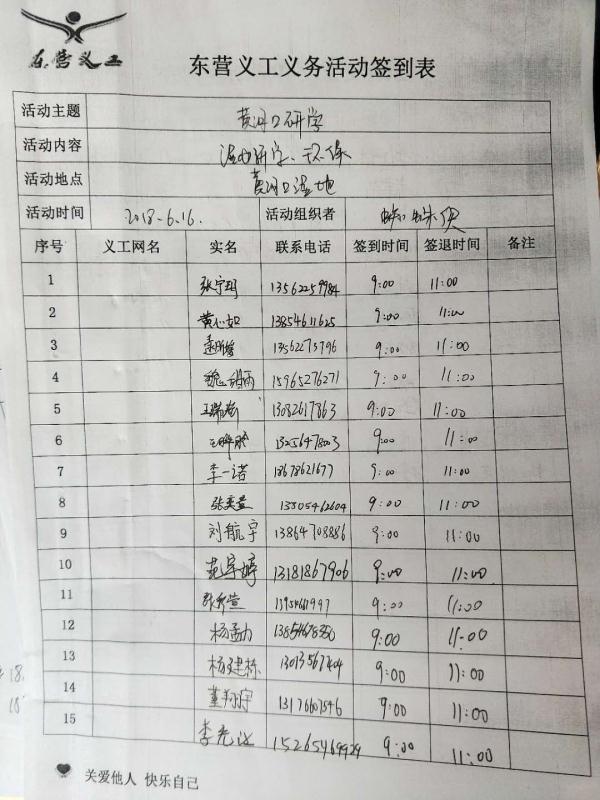 东营义工
东营义工义务活动签到表
活动主题 黄河口研学
活动内容 湿地研学、环保
活动地点 黄河口湿地
活动时间 2018-6.16. 活动组织者
序号 义工网名 实名 联系电话 签到时间 签退时间 备注
1 张宇玥 13562259984 9:00 11:00
2 黄心如 13854611625 9:00 11:00
3 13562273796 9:00 11:00
4 15965276271 9:00 11:00
5 13082617863 9:00 11:00
6 13256478003 9:00 11:00
7 李一诺 18678621677 9:00 11:00
8 张奕萱 13305462604 9:00 11:00
9 刘航宇 13864708886 9:00 11:00
10 范宇婷 13181867906 9:00 11:00
11 9:00 11:00
12 杨孟力 9:00 11:00
13 杨建栋 13013567404 9:00 11:00
14 董翔宇 13176607546 9:00 11:00
15 李光达 9:00 11:00
关爱他人 快乐自己